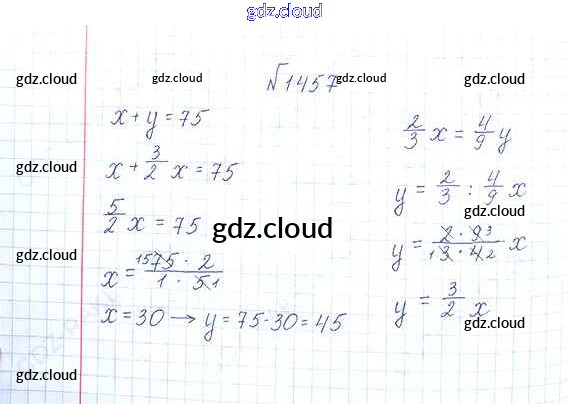 gdz.cloud
gdz.cloud gdz.cloud gdz.cloud gdz.cloud
№1457
x + y = 75
x + 3/2 x = 75
5/2 x = 75
x = 1575 · 2 / 1 · 51
x = 30 → y = 75 - 30 = 45
2/3 x = 4/9 y
y = 2/3 : 4/9 x
y = 2 · 93 / 13 · 42 x
y = 3/2 x
gdz.cloud gdz.cloud
gdz.cloud gdz.cloud gdz.cloud
gdz.cloud gdz.cloud
gdz.cloud gdz.cloud